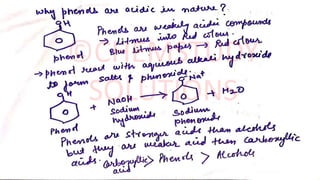 why phenols are acidic in nature?
OH
Phenol
Phenols are weakly acidic compounds
→ Litmus into Red colour.
Blue litmus paper → Red colour
→ phenol react with aqueous alkali hydroxide
to form salts & phenoxide.
OH
Phenol
+ NaOH
Sodium
hydroxide
→
O⁻Na⁺
Sodium
phenoxide
+ H2O
Phenols are stronger acids than alcohols
but they are weaker acid then Carboxyllic
acids.
Carboxyllic
acid
> Phenols > Alcohols